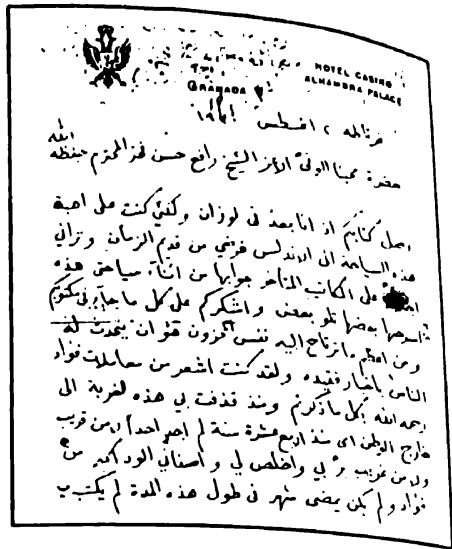 HOTEL CASINO
ALHAMBRA PALACE
GRANADA
غرناطه ٢ اغسطس
حضرة محبنا الوفي الأعز الشيخ رافع حسن فخر المحترم حفظه الله
وصل كتابكم اذ انا بعد في لوزان ولكني كنت على اهبة
هذه السياحة الى الاندلس غرضي من قديم الزمان وتراني
على الكاتب المتأخر جوابها من اثناء سياحتي هذه
بعضها تلو بعض واشكركم على كل ما جاء في مكتوبكم
ومن اعظم ما ترتاح اليه نفس المحزون هو ان يتحدث له
الناس باخبار فقيده ولقد كنت اشعر من معاملات فؤاد
رحمه الله بكل ما ذكرتم ومنذ قذفت بي هذه الغربة الى
خارج الوطن اي منذ اربع عشرة سنة لم اجد احدا لا من قريب
ولا من غريب بر بي واخلص لي واصفاني الود اكثر من
فؤاد ولم يكن يمضي شهر في طول هذه المدة لم يكتب